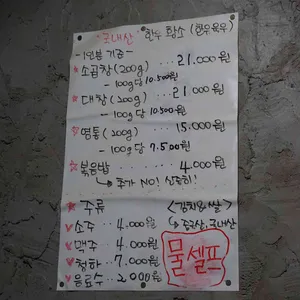 국내산 한우 황소 (한우육우)
-1인분 기준-
소곱창(200g) ··· 21.000원
- 100g당 10.500원
대창(200g) ··· 21.000원
- 100g당 10.500원
염통(200g) ··· 15.000원
- 100g당 7.500원
볶음밥 ··· 4.000원
추가 NO! 신중히!
주류 <김치&쌀>
소주 · 4.000원 중국산, 국내산
맥주 4.000원
청하 · 7.000원
음료수 · 2.000원
물 셀프